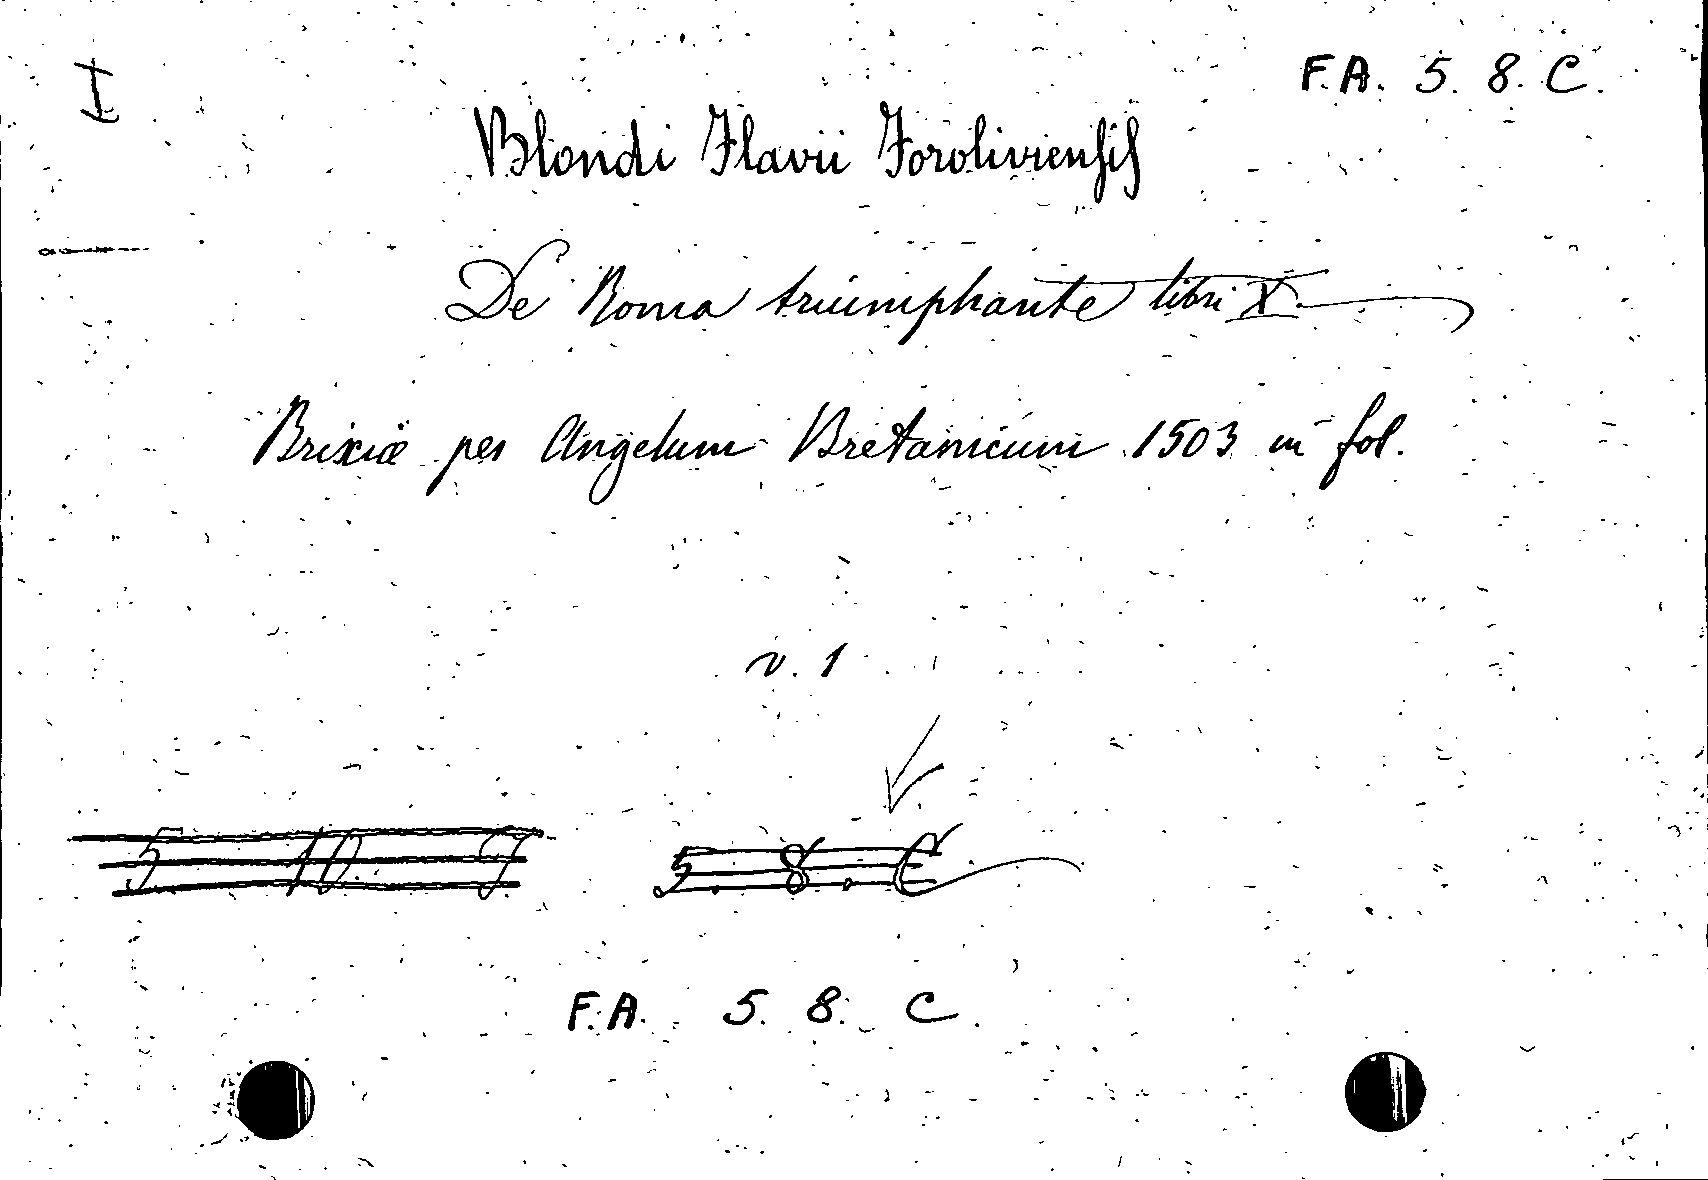 I
F.A. 5. 8. C.
Blondi Flavii Foroliviensis
De Roma triumphante libri X
Brixiæ per Angelum Bretanicum 1503 in fol.
v. 1
5 10. J
5. 8. C
F.A. 5. 8. C.